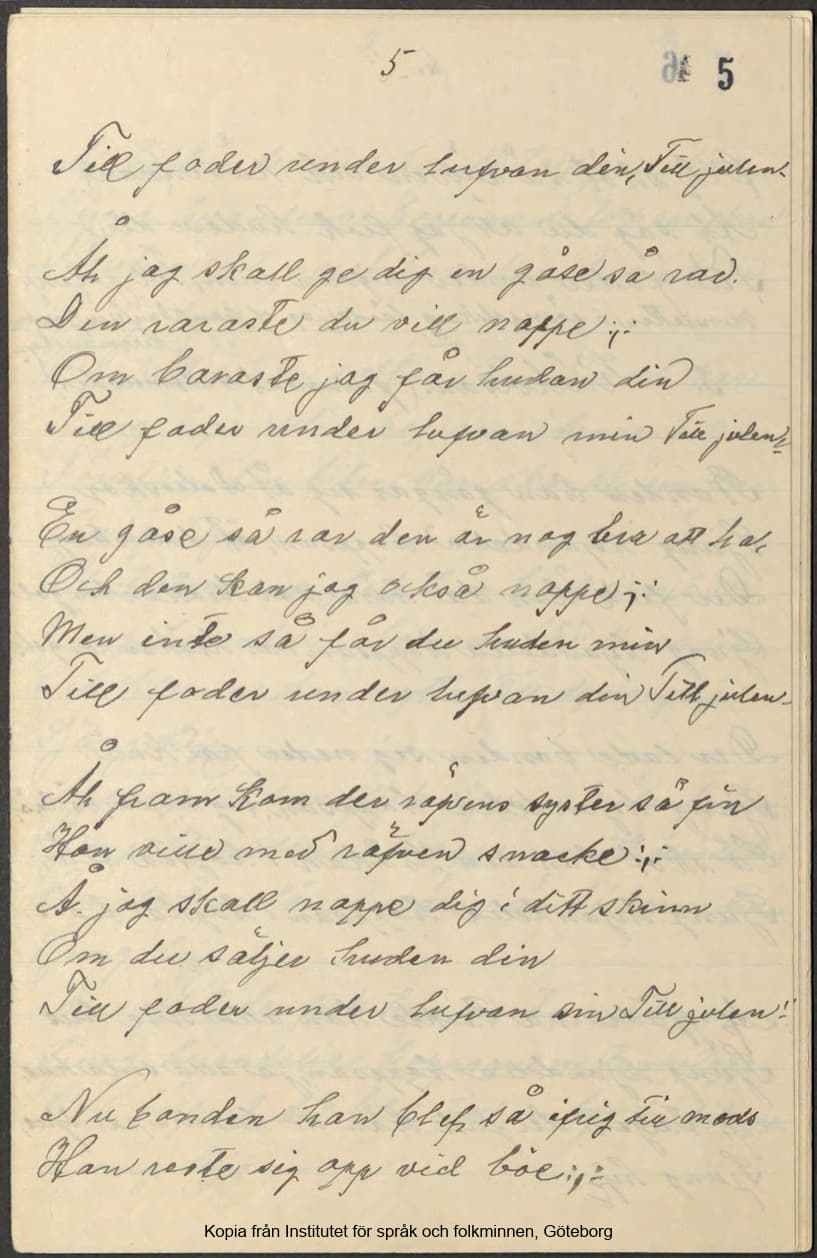 5
5
Till foder under lufvan din, Till julen.
Åh jag skall ge dig en gåse så rar.
Den raraste du vill noppe :,:
Om baraste jag får hudan din
Till foder under lufvan min Till julen!
En gåse så rar den är nog bra att ha,
Och den kan jag också noppe ;,:
Men inte så får du huden min
Till foder under lufvan din Till julen
Åh fram kom der räfvens syster så fin
Hon ville med räfven snacke :,:
Å jag skall noppe dig i ditt skinn
Om du säljer huden din
Till foder under lufvan sin Till julen!
Nu bonden han blef så ifrig till mods
Han reste sig opp vid böe :,:
Kopia från Institutet för språk och folkminnen, Göteborg